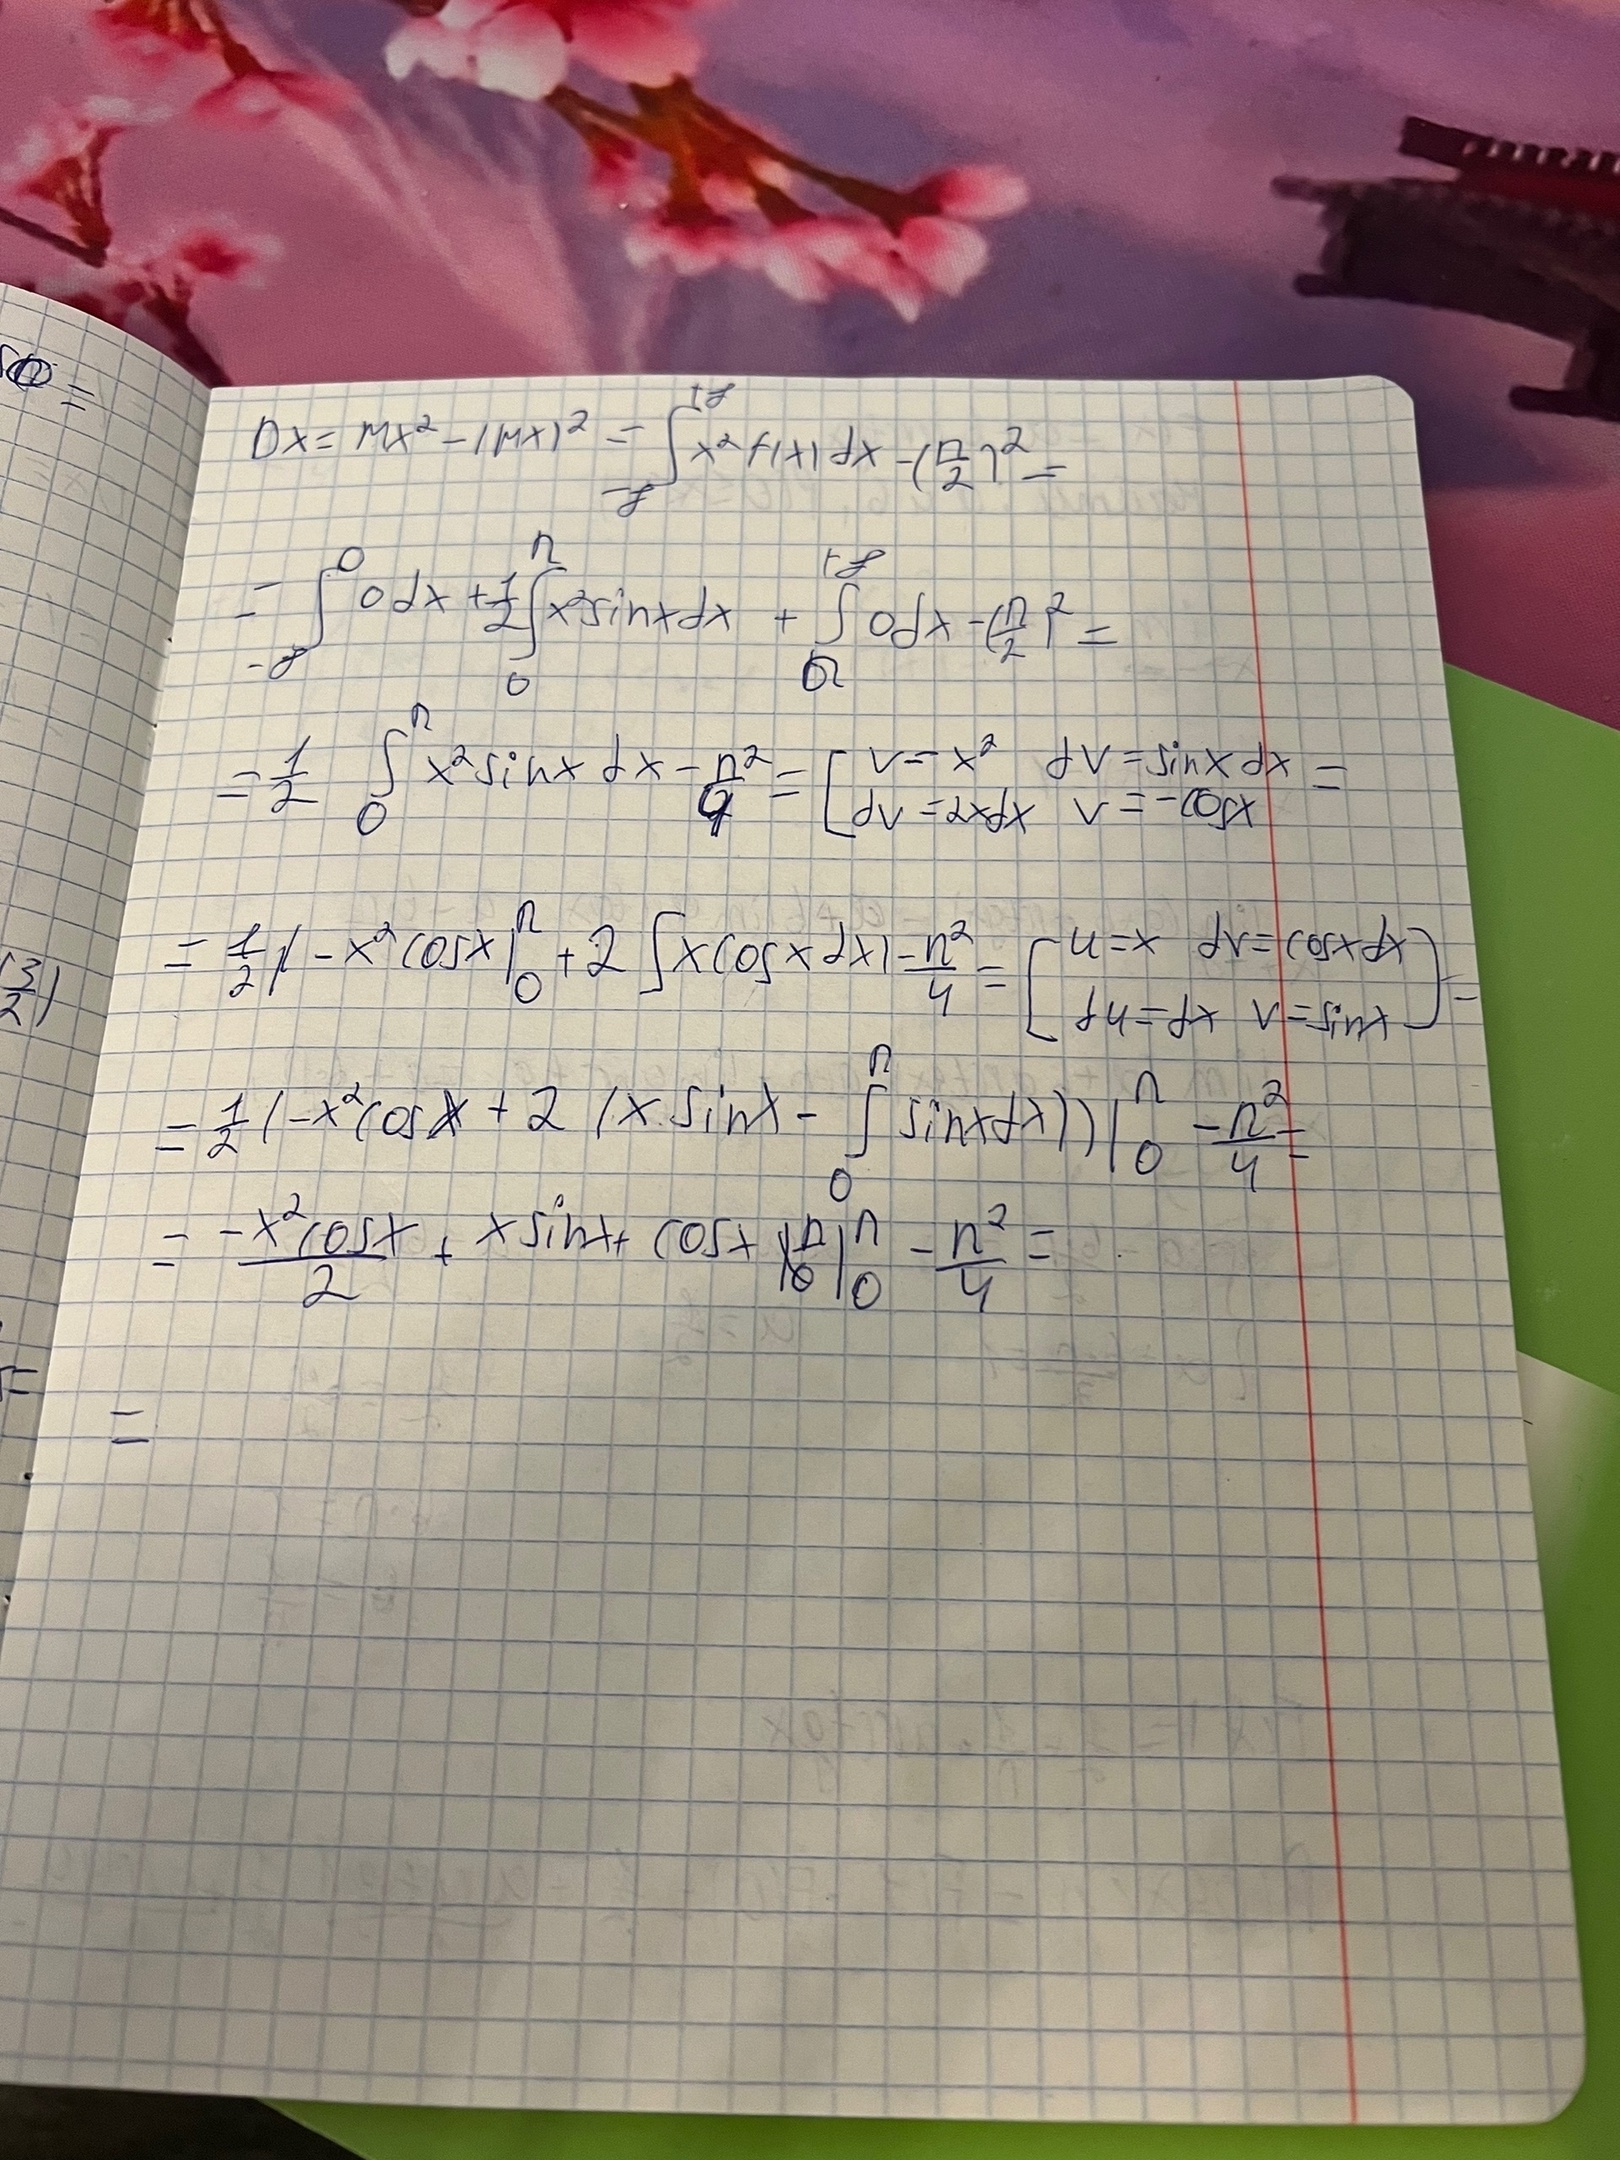 DX = MX² - (MX)² = ∫_{-∞}^{+∞} x² f(x) dx - (π/2)² =
= ∫_{-∞}^{0} 0 dx + 1/2 ∫_{0}^{π} x² sin x dx + ∫_{π}^{+∞} 0 dx - (π/2)² =
= 1/2 ∫_{0}^{π} x² sin x dx - π²/4 = [ v = x² dv = sin x dx =
dv = 2x dx v = -cos x
= 1/2 ( -x² cos x |_{0}^{π} + 2 ∫ x cos x dx ) - π²/4 = [ u = x dv = cos x dx ] =
du = dx v = sin x
= 1/2 ( -x² cos x + 2 ( x sin x - ∫_{0}^{π} sin x dx ) ) |_{0}^{π} - π²/4 =
= -x² cos x / 2 + x sin x + cos x |_{0}^{π} - π²/4 =
=
(3/2)
=
=